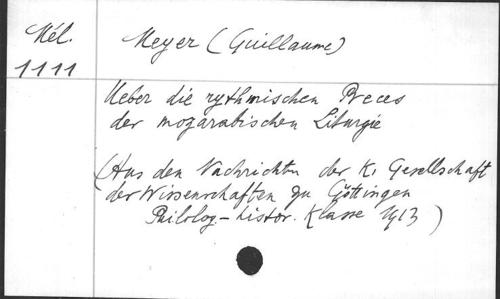 Mél. Meyer (Guillaume)
1111
Ueber die rythmischen Preces
der mozarabischen Liturgie
(Aus den Nachrichten der K. Gesellschaft
der Wissenschaften zu Göttingen
Philolog-histor. Klasse 1913)